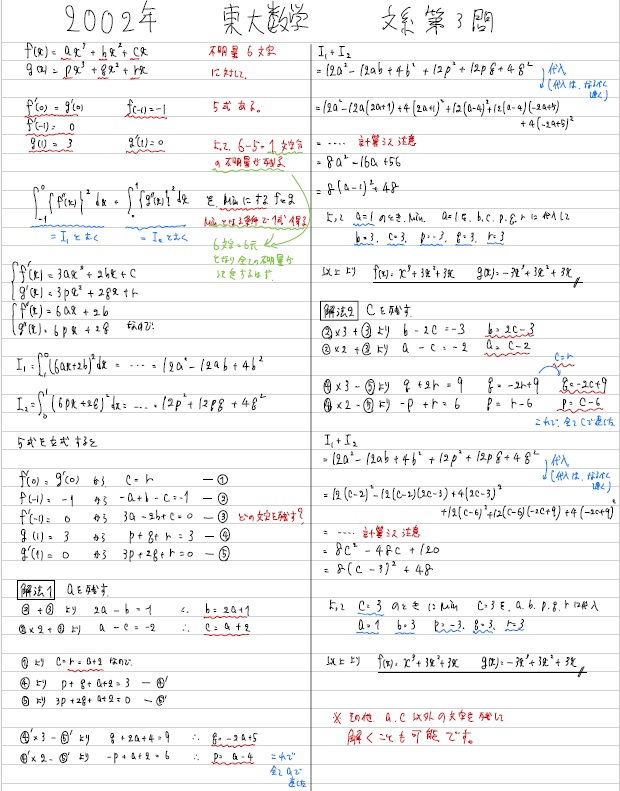 2002年 東大数学 文系第3問
f(x) = ax³ + bx² + cx 不明量 6文字
g(x) = px³ + qx² + rx に対して、
f'(0) = g'(0) f(-1) = -1 5式 ある。
f'(-1) = 0
g(1) = 3 g'(1) = 0 よって 6-5=1 文字分の不明量が残る
∫₋₁⁰ {f''(x)}² dx + ∫₀¹ {g''(x)}² dx を Min にする f と g
= I₁とおく = I₂とおく
Minとなる条件で1式得る
6文字=6式
となり全ての不明量が
決定するはず。
f'(x) = 3ax² + 2bx + c
g'(x) = 3px² + 2qx + r
f''(x) = 6ax + 2b
g''(x) = 6px + 2q なので
I₁ = ∫₋₁⁰ (6ax+2b)² dx = …… = 12a² - 12ab + 4b²
I₂ = ∫₀¹ (6px+2q)² dx = …… = 12p² + 12pq + 4q²
5式を立式すると
f'(0) = g'(0) から c = r ―①
f(-1) = -1 から -a+b-c = -1 ―②
f'(-1) = 0 から 3a-2b+c = 0 ―③ どの文字を残す?
g(1) = 3 から p+q+r = 3 ―④
g'(1) = 0 から 3p+2q+r = 0 ―⑤
解法1 aを残す
②+③ より 2a-b = 1 ∴ b = 2a+1
②×2+③ より a-c = -2 ∴ c = a+2
①より c = r = a+2 なので
④より p+q+a+2 = 3 ―④'
⑤より 3p+2q+a+2 = 0 ―⑤'
④'×3-⑤' より q+2a+4 = 9 ∴ q = -2a+5
④'×2-⑤' より -p+a+2 = 6 ∴ p = a-4 これで
全てaで
表した
I₁+I₂
= 12a² - 12ab + 4b² + 12p² + 12pq + 4q²
代入
(代入は、なるべく遅く)
= 12a² - 12a(2a+1) + 4(2a+1)² + 12(a-4)² + 12(a-4)(-2a+5)
+ 4(-2a+5)²
= …… 計算ミス 注意
= 8a² - 16a + 56
= 8(a-1)² + 48
よって a=1 のとき、Min. a=1を、b.c.p.q.rに代入して
b=3, c=3, p=-3, q=3, r=3
以上より f(x) = x³+3x²+3x g(x) = -3x³+3x²+3x
解法2 cを残す
②×3+③より b-2c = -3 b = 2c-3
②×2+③より a-c = -2 a = c-2
c=r
④×3-⑤より q+2r = 9 q = -2r+9 q = -2c+9
④×2-⑤より -p+r = 6 p = r-6 p = c-6
これで、全てcで表した
I₁+I₂
= 12a² - 12ab + 4b² + 12p² + 12pq + 4q²
代入
(代入は、なるべく遅く)
= 12(c-2)² - 12(c-2)(2c-3) + 4(2c-3)²
+ 12(c-6)² + 12(c-6)(-2c+9) + 4(-2c+9)²
= …… 計算ミス 注意
= 8c² - 48c + 120
= 8(c-3)² + 48
よって c=3 のときに Min c=3を、a.b.p.q.rに代入
a=1 b=3 p=-3, q=3, r=3
以上より f(x) = x³+3x²+3x g(x) = -3x³+3x²+3x
※ その他 a.c以外の文字を残して
解くことも可能です。